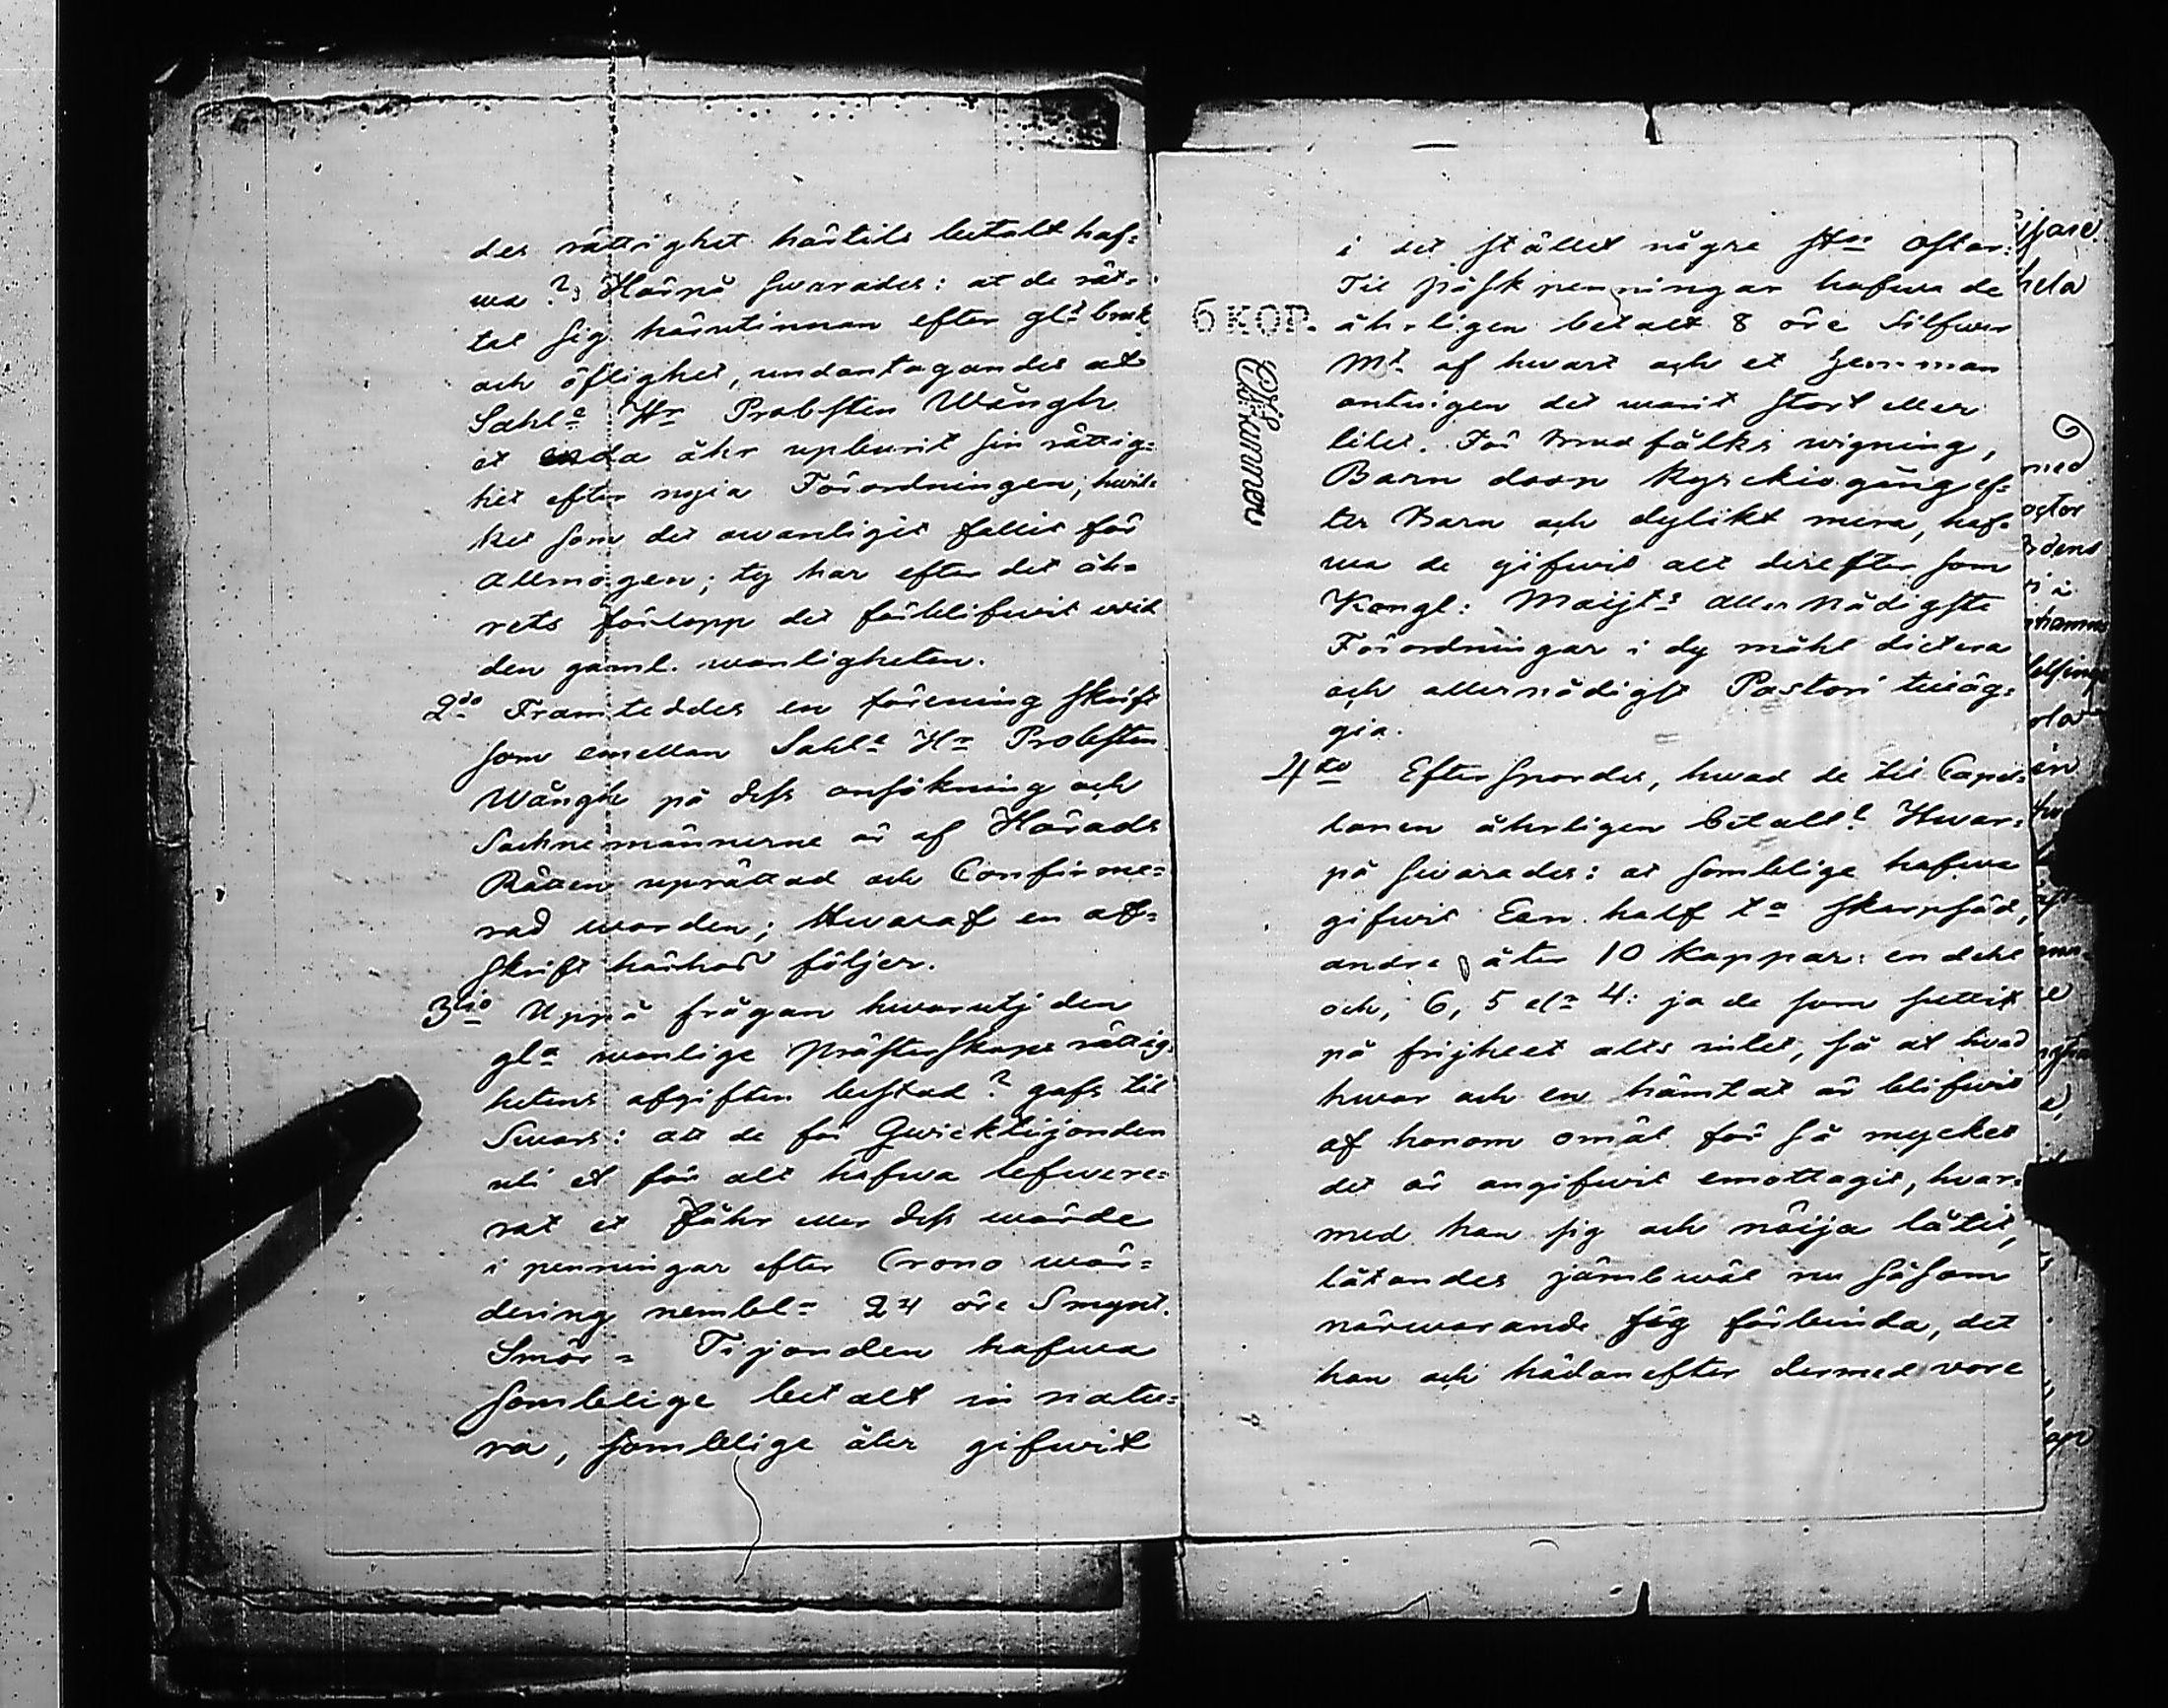 des rättighet härtils betalt haf=
wa? Härpå swarades: at de rät=
tat sig härutinnan efter gl:t bruk
och öflighet, undantagandes at
Sahl:e H:r Probsten Wångh
et enda åhr upburit sin rättig=
het efter nyia Förordningen; hwil=
ket som det owanligit fallit för
Allmogen; ty har efter det åh=
rets förlopp det förblifwit wid
den gaml. wanligheten.
2:do Framteddes en förening skrift
som emellan Sahl:e H:r Probsten
Wångh på dess ansökning och
Sochnemännerne är af Härads
Rätten uprättad och Confirme=
rad worden; Hwaraf en af=
skrift härhos följer.
3:tio Uppå frågan hwarutj den
gl:a wanlige Prästerskaps rättig=
hetens afgiften bestod? gafs til
Swars: at de för Qwicktijonden
uti et för alt hafwa lefwere=
rat et Fåhr eller dess wärde
i penningar efter Crono wär=
dering nembl:n 24 öre Smynt.
Smör= Tijonden hafwa
somblige betalt in natu=
ra, somblige åter gifwit
i det stället någre st:n Ostar:
Til påsk penningar hafwa de
åhrligen betalt 8 öre Silfwer
M:t af hwart och et Hemman
antingen det warit stort eller
litet. För Brudfålks wigning,
Barn doop Kyrckiogång ef=
ter Barn och dylikt mera, haf=
wa de gifwit alt derefter som
Kongl: Maijt:s allernådigste
Förordningar i dy måhl dictera
och allernådigst Pastori tilläg=
gia.
4:to Efterspordes, hwad de til Cape=
lanen åhrligen betalt? Hwar=
på swarades: at somblige hafwa
gifwit Een half t:a skarpsäd,
andre åter 10 Kappar: en dehl
och, 6, 5 el:r 4: ja de som suttit
på frijheet alls intet, så at hwad
hwar och en hämtat är blifwit
af honom omält för så mycket
det är angifwit emottagit, hvar=
med han sig och nöija låtit,
låtandes jämbwäl nu såsom
närwarande sig förbinda, det
han och hädanefter dermed vore
6 KOP.